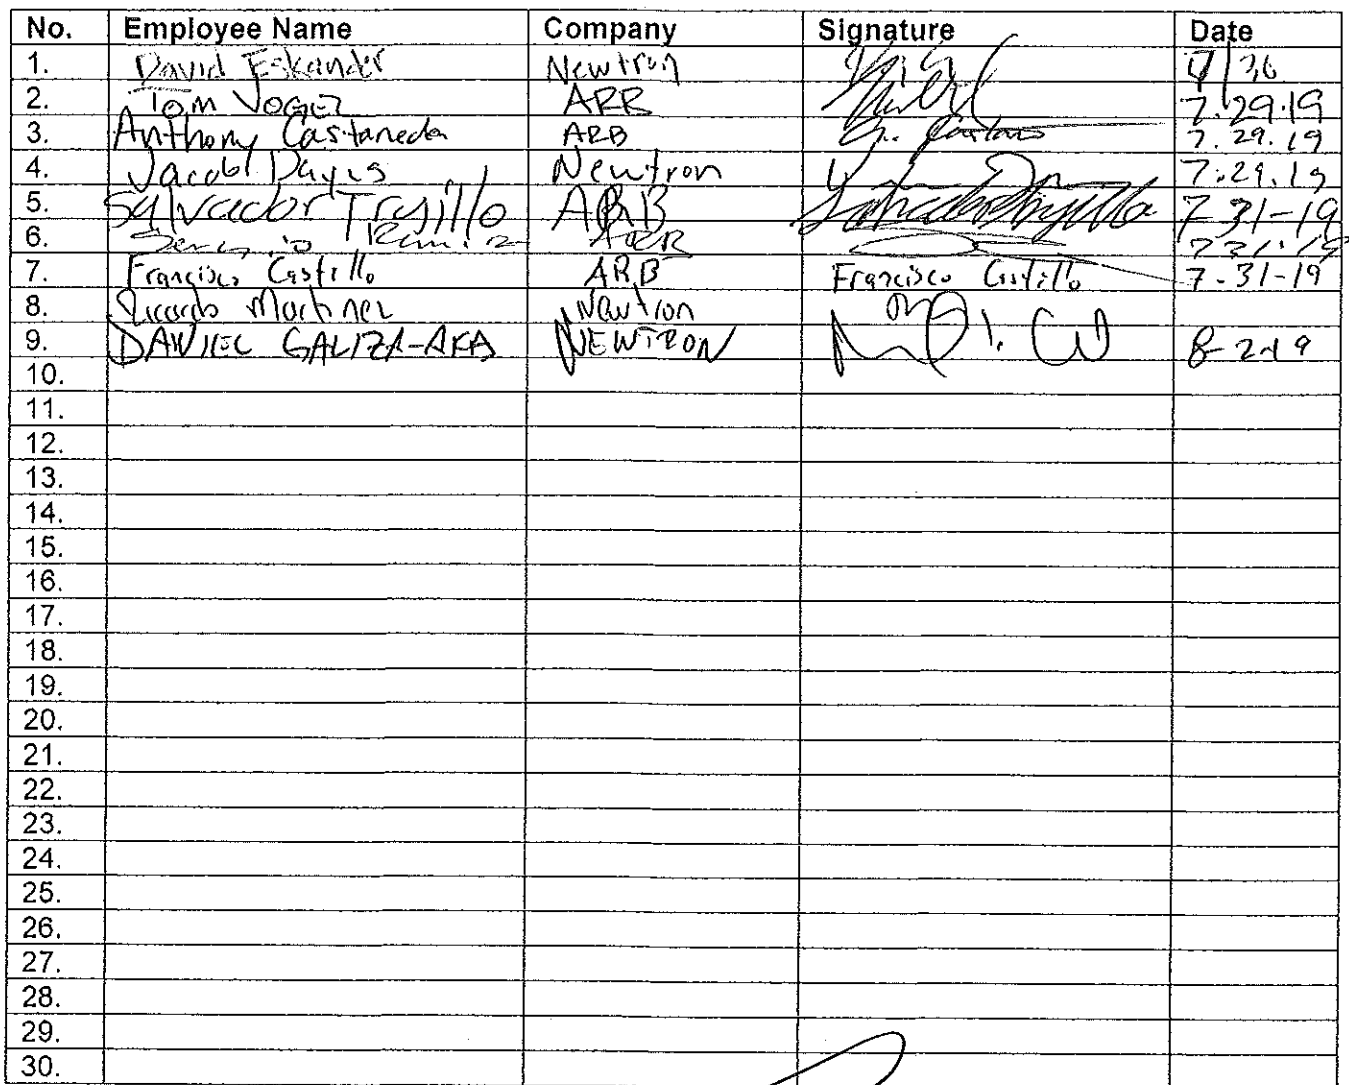 No. Employee Name Company Signature Date
1. David Eskander Newtron
2. Tom Vogel ARB 7.29.19
3. Anthony Castaneda ARB 7.29.19
4. Jacob Davis Newtron 7.29.19
5. Salvador Trujillo ARB 7-31-19
6. ARB
7. Francisco Castillo ARB Francisco Castillo 7-31-19
8. Ricardo Martinez Newtron
9. DANIEL GALIZA-AKA NEWTRON 8-2-19
10.
11.
12.
13.
14.
15.
16.
17.
18.
19.
20.
21.
22.
23.
24.
25.
26.
27.
28.
29.
30.